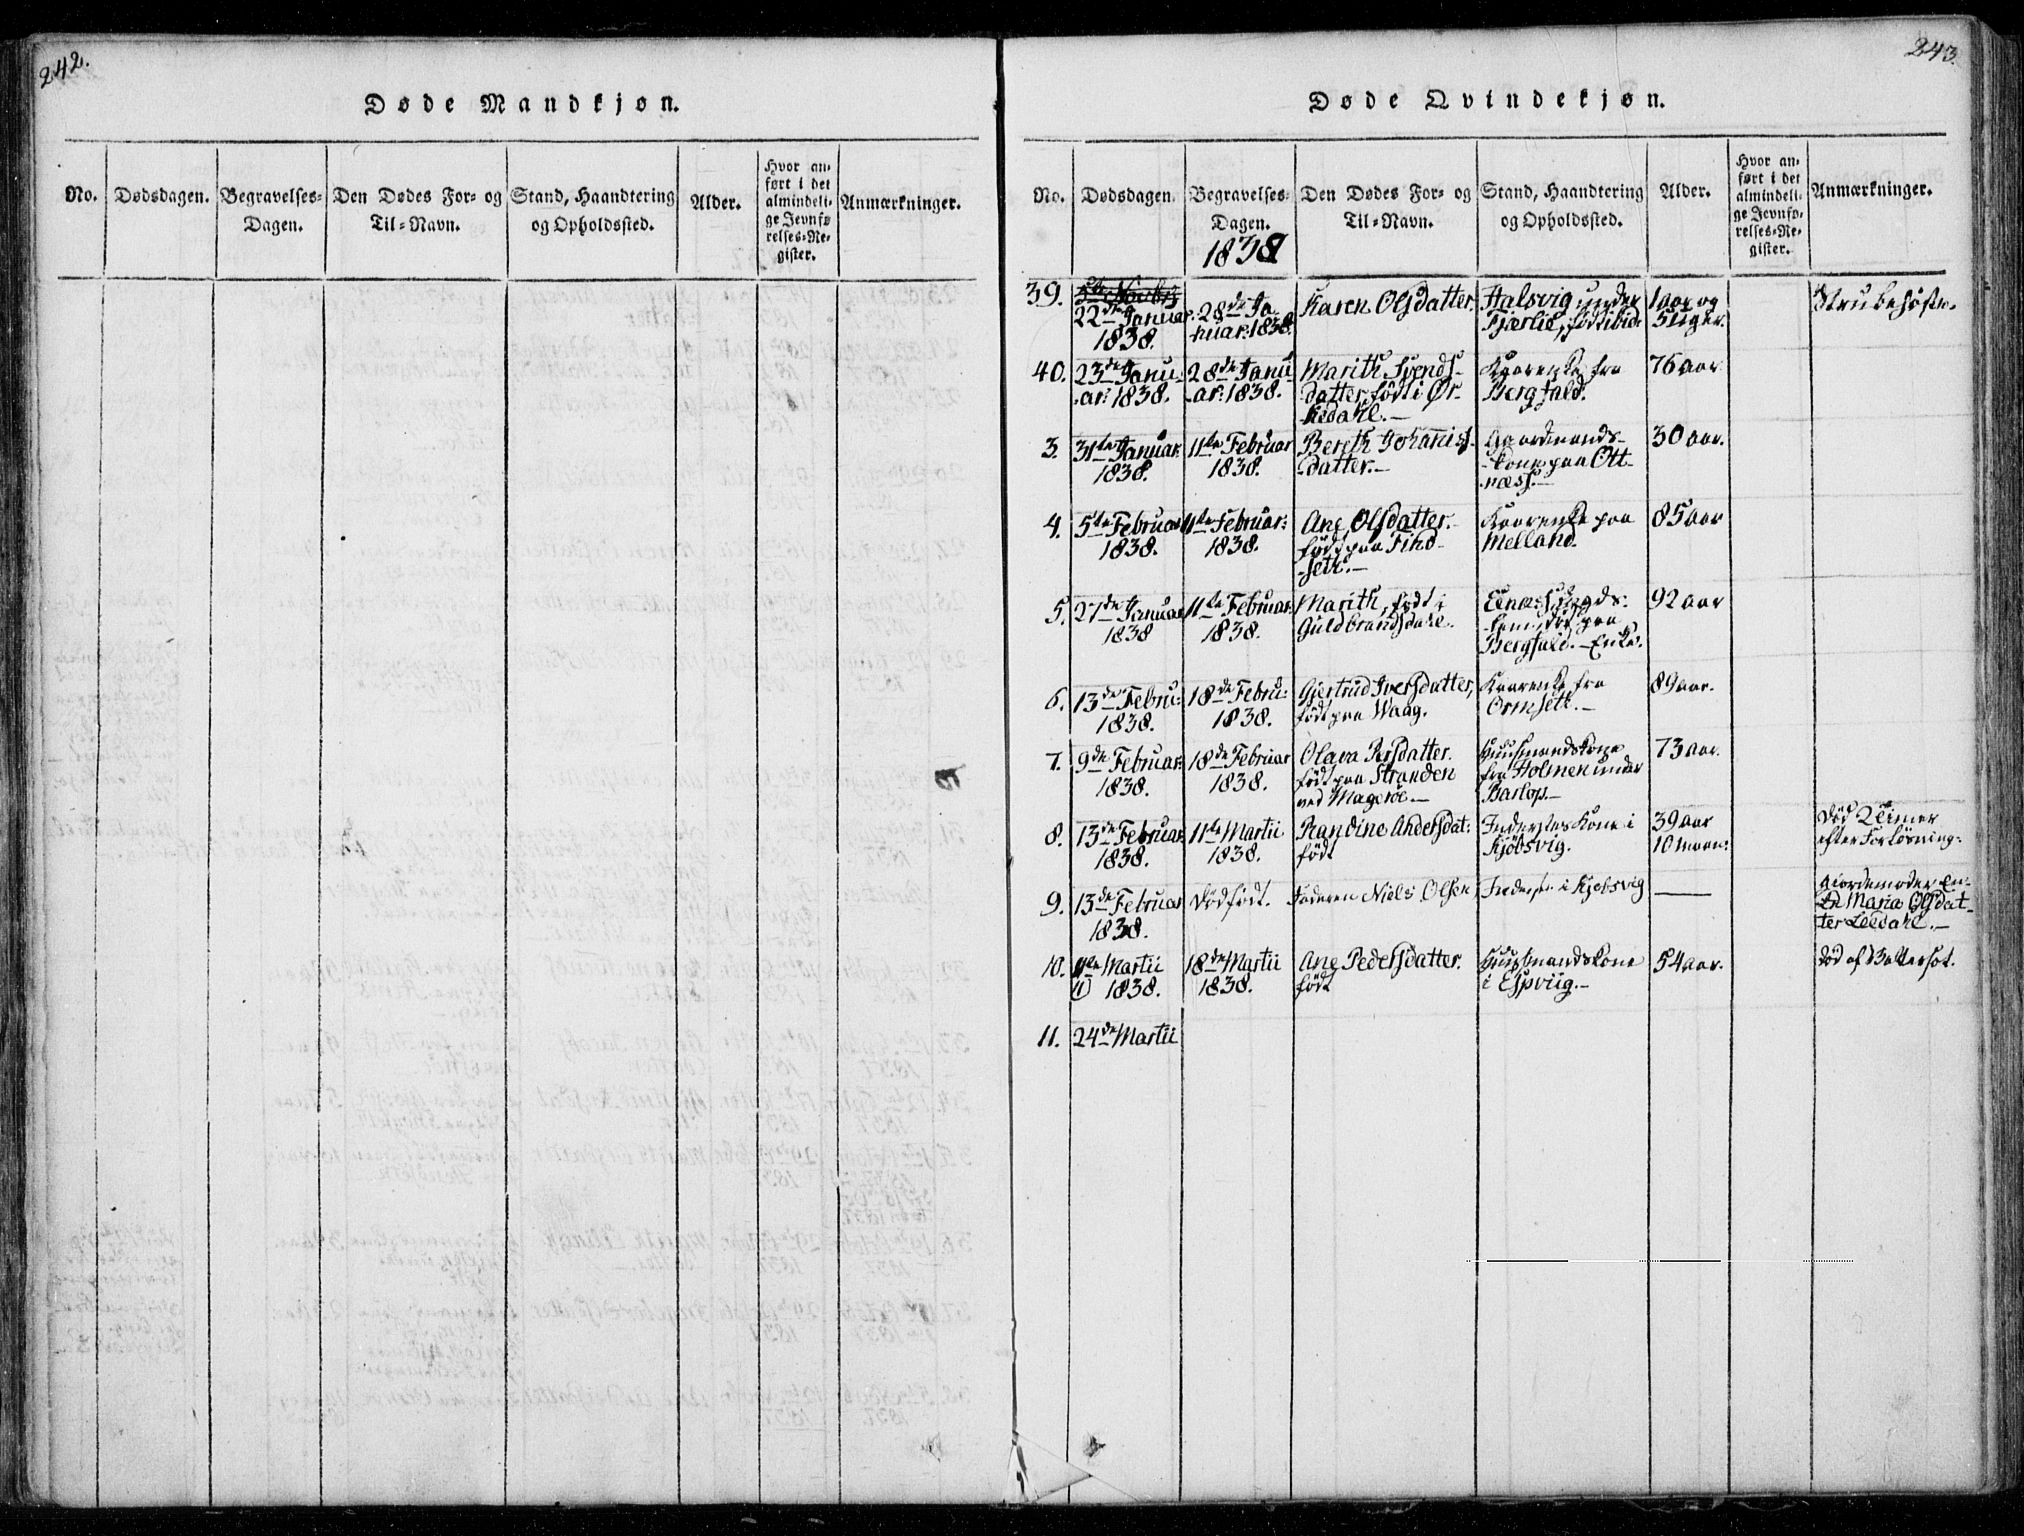 242.
Døde Mandkjøn.
No.
Dødsdagen.
Begravelses-
Dagen.
Den Dødes For- og
Til-Navn.
Stand, Haandtering
og Opholdssted.
Alder.
Hvor an-
ført i det
almindeli-
ge Jevnfø-
relses-Re-
gister.
Anmærkninger.
243.
Døde Qvindekjøn.
No.
Dødsdagen.
Begravelses-
Dagen.
1838
Den Dødes For- og
Til-Navn.
Stand, Haandtering
og Opholdssted.
Alder.
Hvor an-
ført i det
almindeli-
ge Jevnfø-
relses-Re-
gister.
Anmærkninger.
39.
22de Januar
1838.
28de Ja-
nuar: 1838.
Karen Olsdatter.
Halsvig under
Fjærlie, født ibid:
1 aar og
5 Uger.
Strubehoste.
40.
23de Janu-
ar: 1838.
28de Janu
ar: 1838.
Marith Svends-
datter, født i Ør-
kedahl.-
Kaarenke fra
Bergfald.
76 aar
3.
31te Januar.
1838.
11te Februar
1838.
Bereth Johannis-
datter.-
Gaardmands-
kone paa Ott-
næss.-
30 aar.
4.
5te Februar
1838.
11te Februar:
1838.
Ane Olsdatter.-
født paa
-seth.-
Kaarenke paa
Melland.
85 aar
5.
27de Januar
1838
11te Februar:
1838.
Marith, født i
Guldbrandsdahl.
paa
Bergfald.- Enke.
92 aar
6.
13de Febru:
1838.
18de Febru:
1838.
Gjertrud Iversdatter,
født paa Waag.
Kaarenke fra
Ormseth.-
89 aar.
7.
9de Februar:
1838.
18de Februar
1838.
Olava Persdatter.
født paa Stranden
ved Magerøe.-
Huusmandskone
fra Holmen under
Barlop.-
73 aar.
8.
13de Februar.
1838.
11te Martii
1838.
Randine Andersdat:
født
Inderstes Kone i
Kjøbsvig.
39 aar
10 maan:
Død 2 Timer
efter Forløsning:
9.
13de Februar
1838.
Dødfødt.
Faderen Niels Olsen
Inderst i Kjøbsvig
-
Giordemoder En-
ke Maria Olsdat-
ter Leedahl.-
10.
11te Martii
11 1838.
18de Martii
1838.
Ane Pedersdatter.
født
Huusmandskone
i Espviig.-
54 aar.
død af
11.
24de Martii